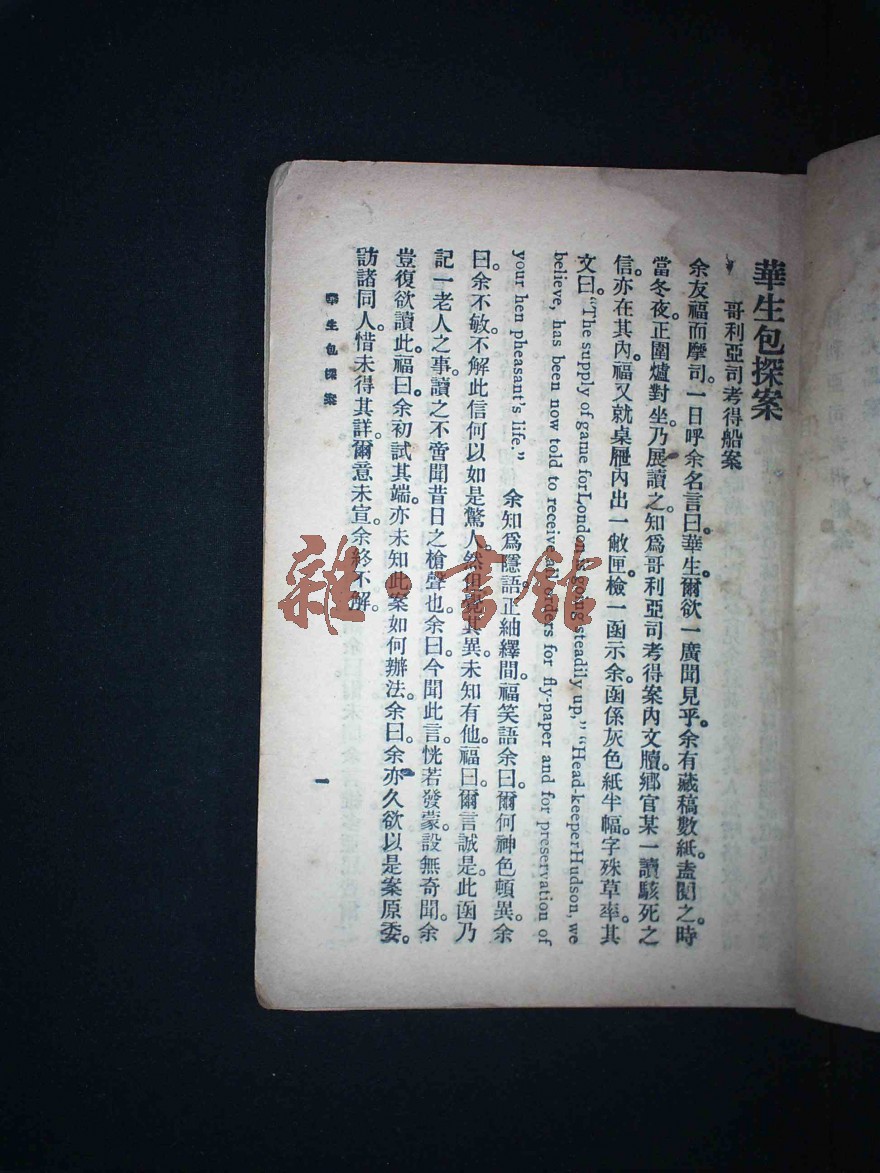 華生包探案
哥利亞司考得船案
余友福而摩司。一日呼余名言曰。華生爾欲一廣聞見乎。余有藏稿數紙。盍閱之。時
當冬夜。正圍爐對坐。乃展讀之。知爲哥利亞司考得案內文牘。鄉官某一讀駭死之
信。亦在其內。福又就桌屜內出一敝匣。檢一函示余。函係灰色紙半幅。字殊草率。其
文曰。"The supply of game forLondon is going steadily up," "Head-keeperHudson, we
believe, has been now told to receive all orders for fly-paper and for preservation of
your hen pheasant's life." 余知爲隱語。正紬繹間。福笑語余曰。爾何神色頓異。余
曰。余不敏。不解此信何以如是驚人。然但覺其異。未知有他。福曰。爾言誠是。此函乃
記一老人之事。讀之不啻聞昔日之槍聲也。余曰。今聞此言。恍若發蒙。設無奇聞。余
豈復欲讀此。福曰。余初試其端。亦未知此案如何辦法。余曰。余亦久欲以是案原委。
訪諸同人。惜未得其詳。爾意未宣。余終不解。
華生包探案
一
雜·書館